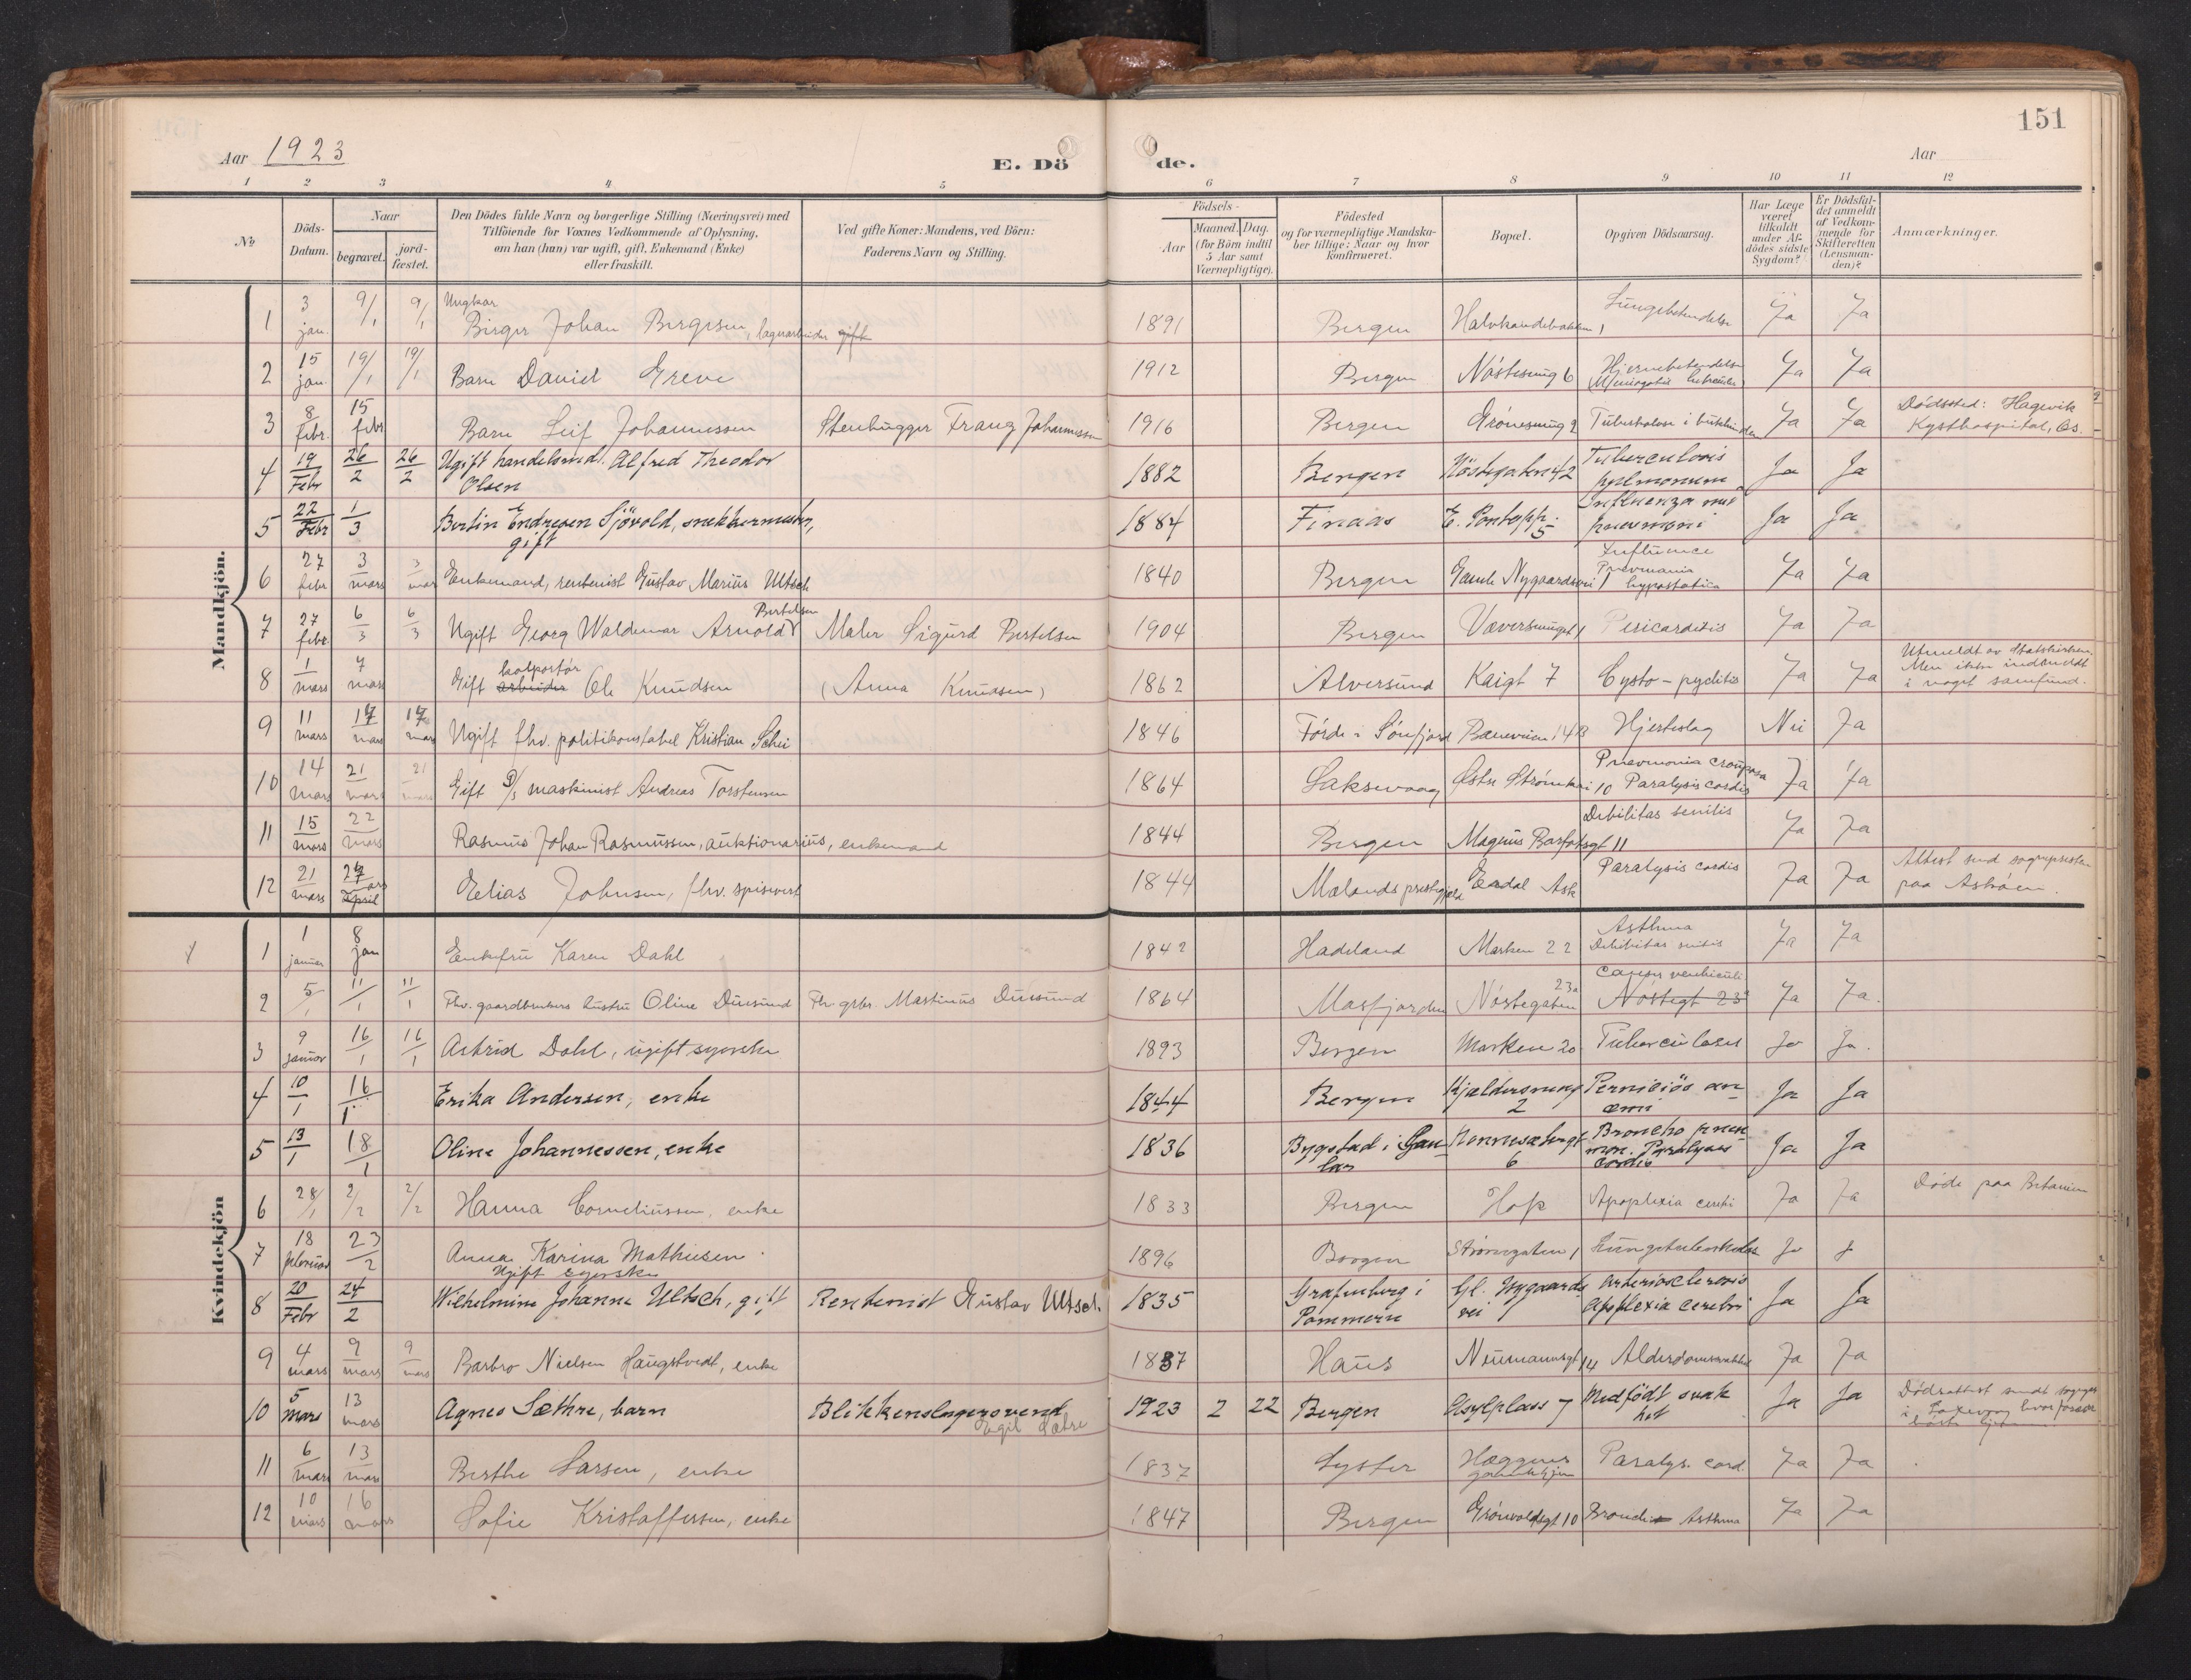 151
Aar 1923
E. Dö
de.
Aar
1 2 3 4 5 6 7 8 9 10 11 12
№
Döds-Datum.
Naar
begravet.
jord-fæstet.
Den Dödes fulde Navn og borgerlige Stilling (Næringsvei) med
Tilföiende for Voxnes Vedkommende af Oplysning,
om han (hun) var ugift, gift, Enkemand (Enke)
eller fraskilt.
Ved gifte Koner: Mandens, ved Börn:
Faderens Navn og Stilling.
Födsels-
Aar
Maaned. Dag.
(for Börn indtil
5 Aar samt
Værnepligtige).
Födested
og for værnepligtige Mandska-
ber tillige: Naar og hvor
konfirmeret.
Bopæl.
Opgiven Dödsaarsag.
Har Læge
været
tilkaldt
under Af-
dödes sidste
Sygdom?
Er Dödsfal-
det anmeldt
af Vedkom-
mende for
Skifteretten
(Lensman-
den)?
Anmærkninger.
Mandkjön.
1 3 jan. 9/1 9/1 Ungkar Birger Johan Birgersen, lagerarbeider gift 1891 Bergen Halvkandebakken 1 Lungebetendelse Ja Ja
2 15 jan. 19/1 19/1 Barn David Greve 1912 Bergen Nóstesmug 6 Hjernebetendelse Ja Ja
3 8 febr. 15 febr Barn Leif Johannessen Stenhugger Franz Johannessen 1916 Bergen Grónesmug 2 Tuberkulose i Ja Ja Dódssted: Hagevik
Kysthospital, Os.
4 19 Febr 26/2 26/2 Ugift handelsmd. Alfred Theodor
Olsen 1882 Bergen Nöstegaten 42 Tuberculosis
pulmonum Ja Ja
5 22 Febr 1/3 Bertin Endresen Sjövold, snekkermester,
gift 1884 Finaas E. Pontopp. 5 Influenza med
pneumoni Ja Ja
6 27 febr 3 mars 3 mar Enkemand, rentenist Gustav Marius Ultsch 1840 Bergen Gamle Nygaardsvei 1 Influence
Pnevmonia
hypostatica Ja Ja
7 27 febr 6/3 6/3 Ugift Georg Waldemar Arnold Bertelsen Maler Sigurd Bertelsen 1904 Bergen Væversmuget 1 Pericarditis Ja Ja
8 1 mars 7 mars Gift arbeider kolportór Ole Knudsen (Anna Knudsen) 1862 Alversund Kaigt 7 Cysto-pyelitis Ja Ja Utmeldt av statskirken.
Men ikke indmeldt
i noget samfund.
9 11 mars 17 mars 17 mars Ugift fhv. politikonstabel Kristian Schei 1846 Fórde i Sónfjord 14B Hjerteslag Nei Ja
10 14 mars 21 mars 21 mars Gift D/s maskinist Andreas Torstensen 1864 Laksevaag Østre Strómkai 10 Pnevmonia crouposa
Paralysis cordis Ja Ja
11 15 mars 22 mars Rasmus Johan Rasmussen, auktionarius, enkemand 1844 Bergen Magnus Barfotsgt 11 Debilitas senilis Ja Ja
12 21 mars 27 mars April Elias Johnsen, fhv. spisevert 1844 Mælands prestegjeld Erdal Ask Paralysis cordis Ja Ja Attest send sognepresten
paa Askóen.
Kvindekjön
1 1 januar 8 jan Enkefru Karen Dahl 1842 Hadeland Marken 22 Asthma
Debilitas senilis Ja Ja
2 5/1 11/1 11/1 Fhv. gaardbrukers hustru Oline Duesund Fhv grbr. Martinus Duesund 1864 Masfjorden Nóstegaten 23a Cancer ventriculi
Nóstegt 23a Ja Ja.
3 9 januar 16/1 16/1 Astrid Dahl, ugift syerske 1893 Bergen Marken 20 Tuberculoses Ja Ja.
4 10/1 16/1 Erika Andersen, enke 1844 Bergen Kjældersmug
2 Perniciös an-
æmi Ja Ja
5 13/1 18/1 Oline Johannessen, enke 1836 Bygstad i Gau-
lar Nonnesætergt
6 Broncho pneu-
mon. Paralyses
cordis Ja Ja
6 28/1 2/2 2/2 Hanna Corneliussen, enke 1833 Bergen Hop Apoplexia cerebri Ja Ja Dóde paa Betanien
7 18 februar 23/2 Anna Karina Mathiesen.
Ugift syerske 1896 Bergen Strómgaten 1 Lungetuberkulose Ja J
8 20 Febr 24/2 Wilhelmine Johanne Ultsch, gift Rentenist Gustav Ultsch. 1835 Grafenberg i
Pommern Gl. Nygaards
vei Arteriosclerosis
Apoplexia cerebri Ja Ja
9 4 mars 9 mars 9 mars Barbro Nielsen Haugstvedt, enke 1837 Haus Neumannsgt 14 Alderdomssvakhet Ja Ja
10 5 Mars 13 mars Agnes Sæthre, barn Blikkenslagersvend
Egil Sætre 1923 2 22 Bergen Asylplass 7 Medfödt svak-
het Ja Ja Dódsattest sendt
i Laksevaag hvor
11 6 mars 13 mars Berthe Larsen, enke 1837 Lyster Hæggernes
gamlehjem Paralys. cord. Ja Ja
12 10 mars 16 mars Sofie Kristoffersen, enke 1847 Bergen Grónvoldsgt 10 Asthma Ja Ja